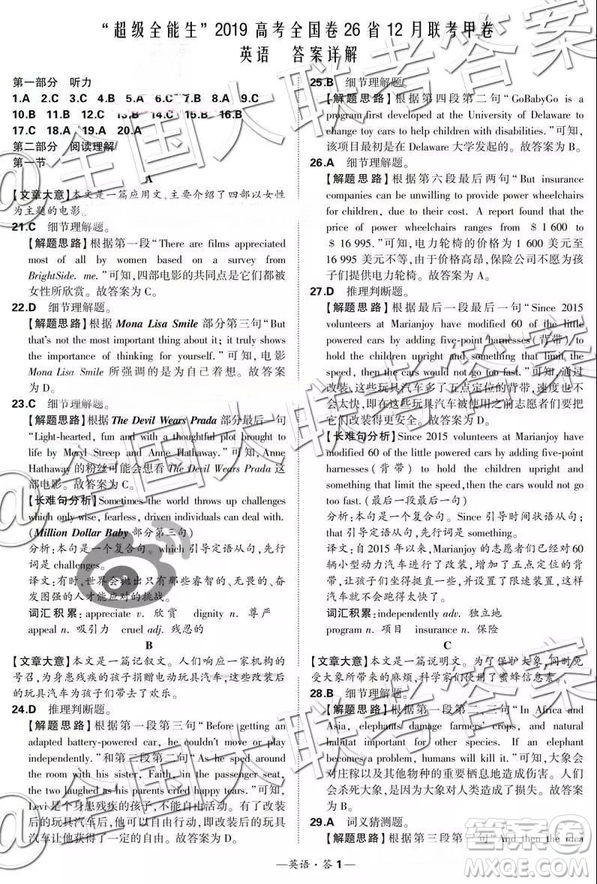 “超级全能生”2019高考全国卷26省12月联考甲卷
英语 答案详解
第一部分 听力
1.A 2.C 3.C 4.B 5.A 6.C 7.C 8.B 9.A
10.B 11.B 12.A 13.A 14.C 15.B 16.B
17.C 18.A 19.A 20.A
第二部分 阅读理解
第一节
A
【文章大意】本文是一篇应用文。主要介绍了四部以女性
为主题的电影。
21.C 细节理解题。
【解题思路】根据第一段“There are films appreciated
most of all by women based on a survey from
BrightSide. me.”可知，四部电影的共同点是它们都
被女性所欣赏。故答案为C。
22.D 细节理解题。
【解题思路】根据 Mona Lisa Smile 部分第三句“But
that's not the most important thing about it; it truly shows
the importance of thinking for yourself.”可知，电影
Mona Lisa Smile 所强调的是为自己着想。故答案
为D。
23.C 细节理解题。
【解题思路】根据 The Devil Wears Prada 部分最后一句
“Light-hearted, fun and with a thoughtful plot brought to
life by Meryl Streep and Anne Hathaway.”可知，Anne
Hathaway 的粉丝可能会想看 The Devil Wears Prada 这
部电影。故答案为C。
【长难句分析】Sometimes the world throws up challenges
which only wise, fearless, driven individuals can deal with.
(Million Dollar Baby 部分第三句)
分析：本句是一个复合句。which 引导定语从句，先行
词是 challenges。
译文：有时，世界会抛出只有那些有睿智的、无畏的、发
愤图强的人才能应对的挑战。
词汇积累：appreciate v. 欣赏 dignity n. 尊严
appeal n. 吸引力 cruel adj. 残忍的
B
【文章大意】本文是一篇记叙文。人们响应一家机构的
号召，为身患残疾的孩子改装电动玩具汽车，这些改装后
的玩具汽车为孩子们带去了欢乐。
24.D 推理判断题。
【解题思路】根据第一段第三句“Before getting the
altered battery-powered car, he wasn't able to move or play
independently.”和第二段“As he sped around the
circle with his twin sister, Faith, in the passenger seat,
the two laughed as his parents cried happy tears.”可知，
Levi是个身患残疾的孩子，不能自由活动，在有了改装
后的玩具汽车之后，他能开车四处活动，由此可推知改
装的玩具汽车让他开心。故答案为D。
25.B 细节理解题。
【解题思路】根据第四段第二句“GoBabyGo is a
program first developed at the University of Delaware to
change toy cars to help children with disabilities.”可知，
该项目是在 Delaware 大学发起的。故答案为B。
26.A 细节理解题。
【解题思路】根据第六段最后两句“But insurance
companies can be unwilling to provide power wheelchairs
for children, due to their cost. She explained that the
price of power wheelchairs range from $ 1 600 to
$ 16 995.”可知，电力轮椅的价格为1 600美元至
16 995美元，由于价格高昂，保险公司不愿为孩子们
提供电力轮椅。故答案为A。
27.D 推理判断题。
【解题思路】根据最后一段最后一句“Since 2015
volunteers at Marianjoy have modified 60 of the little
powered cars by adding five-point harnesses (背带) to
hold the children upright and something that limit the
speed, then the cars would not go too fast.”可知，通过
改装，这些玩具汽车多了五点定位的背带，速度也
不会太快，即在这些玩具汽车被改之前志愿者们要
对其进行改装。故答案为D。
【长难句分析】Since 2015 volunteers at Marianjoy have
modified 60 of the little powered cars by adding five-point
harnesses (背带) to hold the children upright and
something that limit the speed, then the cars would not go
too fast.(最后一段最后一句)
分析：本句是一个复合句。Since 引导时间状语从句；
that 引导定语从句，先行词是 something。
译文：自2015年以来，Marianjoy的志愿者们已对60
辆小型动力汽车进行了改装，增加了五点定位的背带，
让孩子们能坐得挺直，并增加了限制速度的装置，这样
汽车就不会开得太快。
词汇积累：independently adv. 独立地
program n. 项目 insurance n. 保险
C
【文章大意】本文是一篇说明文。为了保护大象，同时不
受大象带来的麻烦，科学家们利用了蜜蜂信息素。
28.B 细节理解题。
【解题思路】根据第一段第二、三句“In Africa and
Asia, elephants damage farmers' crops, and natural
areas, and even put human lives at risk. If an elephant
becomes a problem, humans will kill it.”可知，大象会
对庄稼以及当地居民的生命造成威胁。因此，人
们会杀死大象。故答案为B。
29.A 词义猜测题。
【解题思路】根据第三段第三句
—英语·答1—